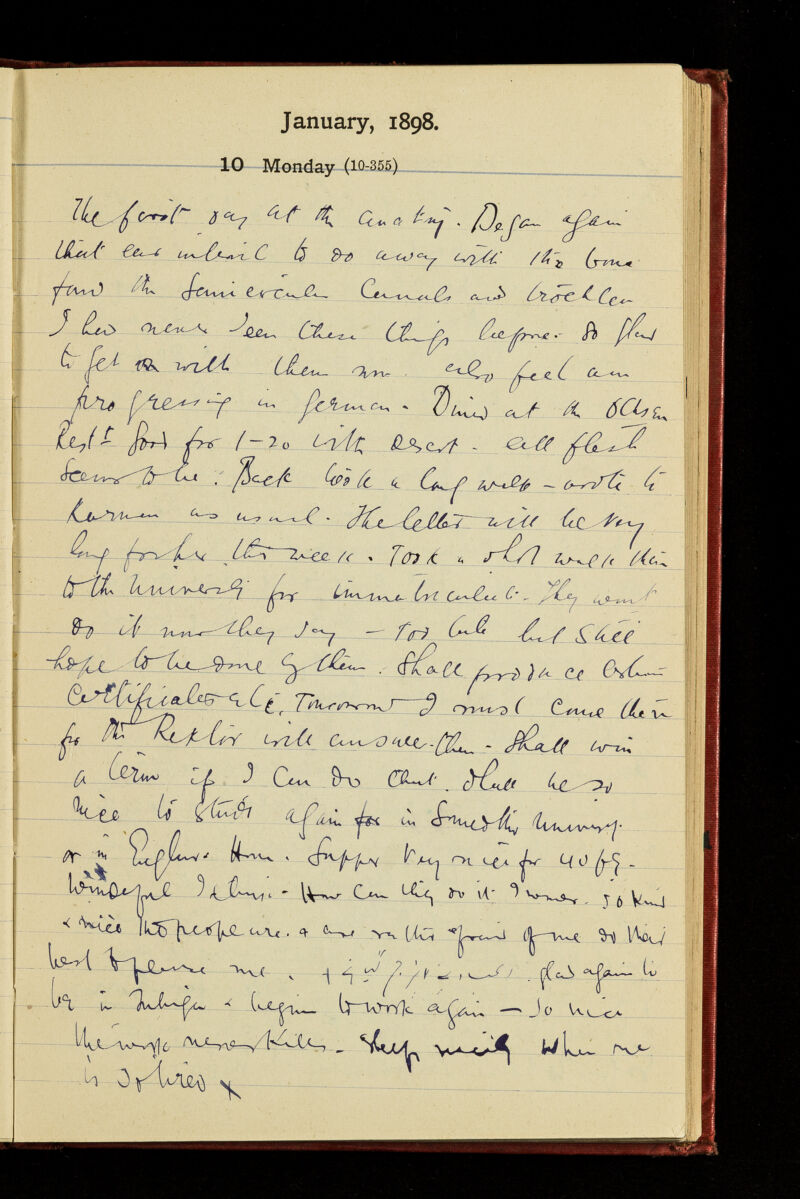 January, 1898.
10 Monday (10-355)
The first day at the anatomy. Began again
that ear to do away with the bone
found the Semicircular Cannals and
I had never seen these things before. So glad
to get on with them now. also feel am
progressing in german - Dined at the Ochsen
Restt good for 1-20 with desert - all flesh
seems to be. Back took a long walk - wrote to
as usual. The letter will be very
long for her this week. Took a short walk then
to the University for They wont
do it now they say - Too late but still
hope to be done by them. Shall produce
Certificates etc. Tomorrow I must come then
for the Rektor will answer then - Shall win
a term if I can do that. Shall be so
nice to study again for in University
or in England Home. Supper very nice for 40 pfg -
How can they do it I wonder. So kind
& nice the people are. & are rather of me do their
best to please me. + glad again to
be in & begin to work again - So nice
the work never kills - Sleep nicely when one
is so tired x